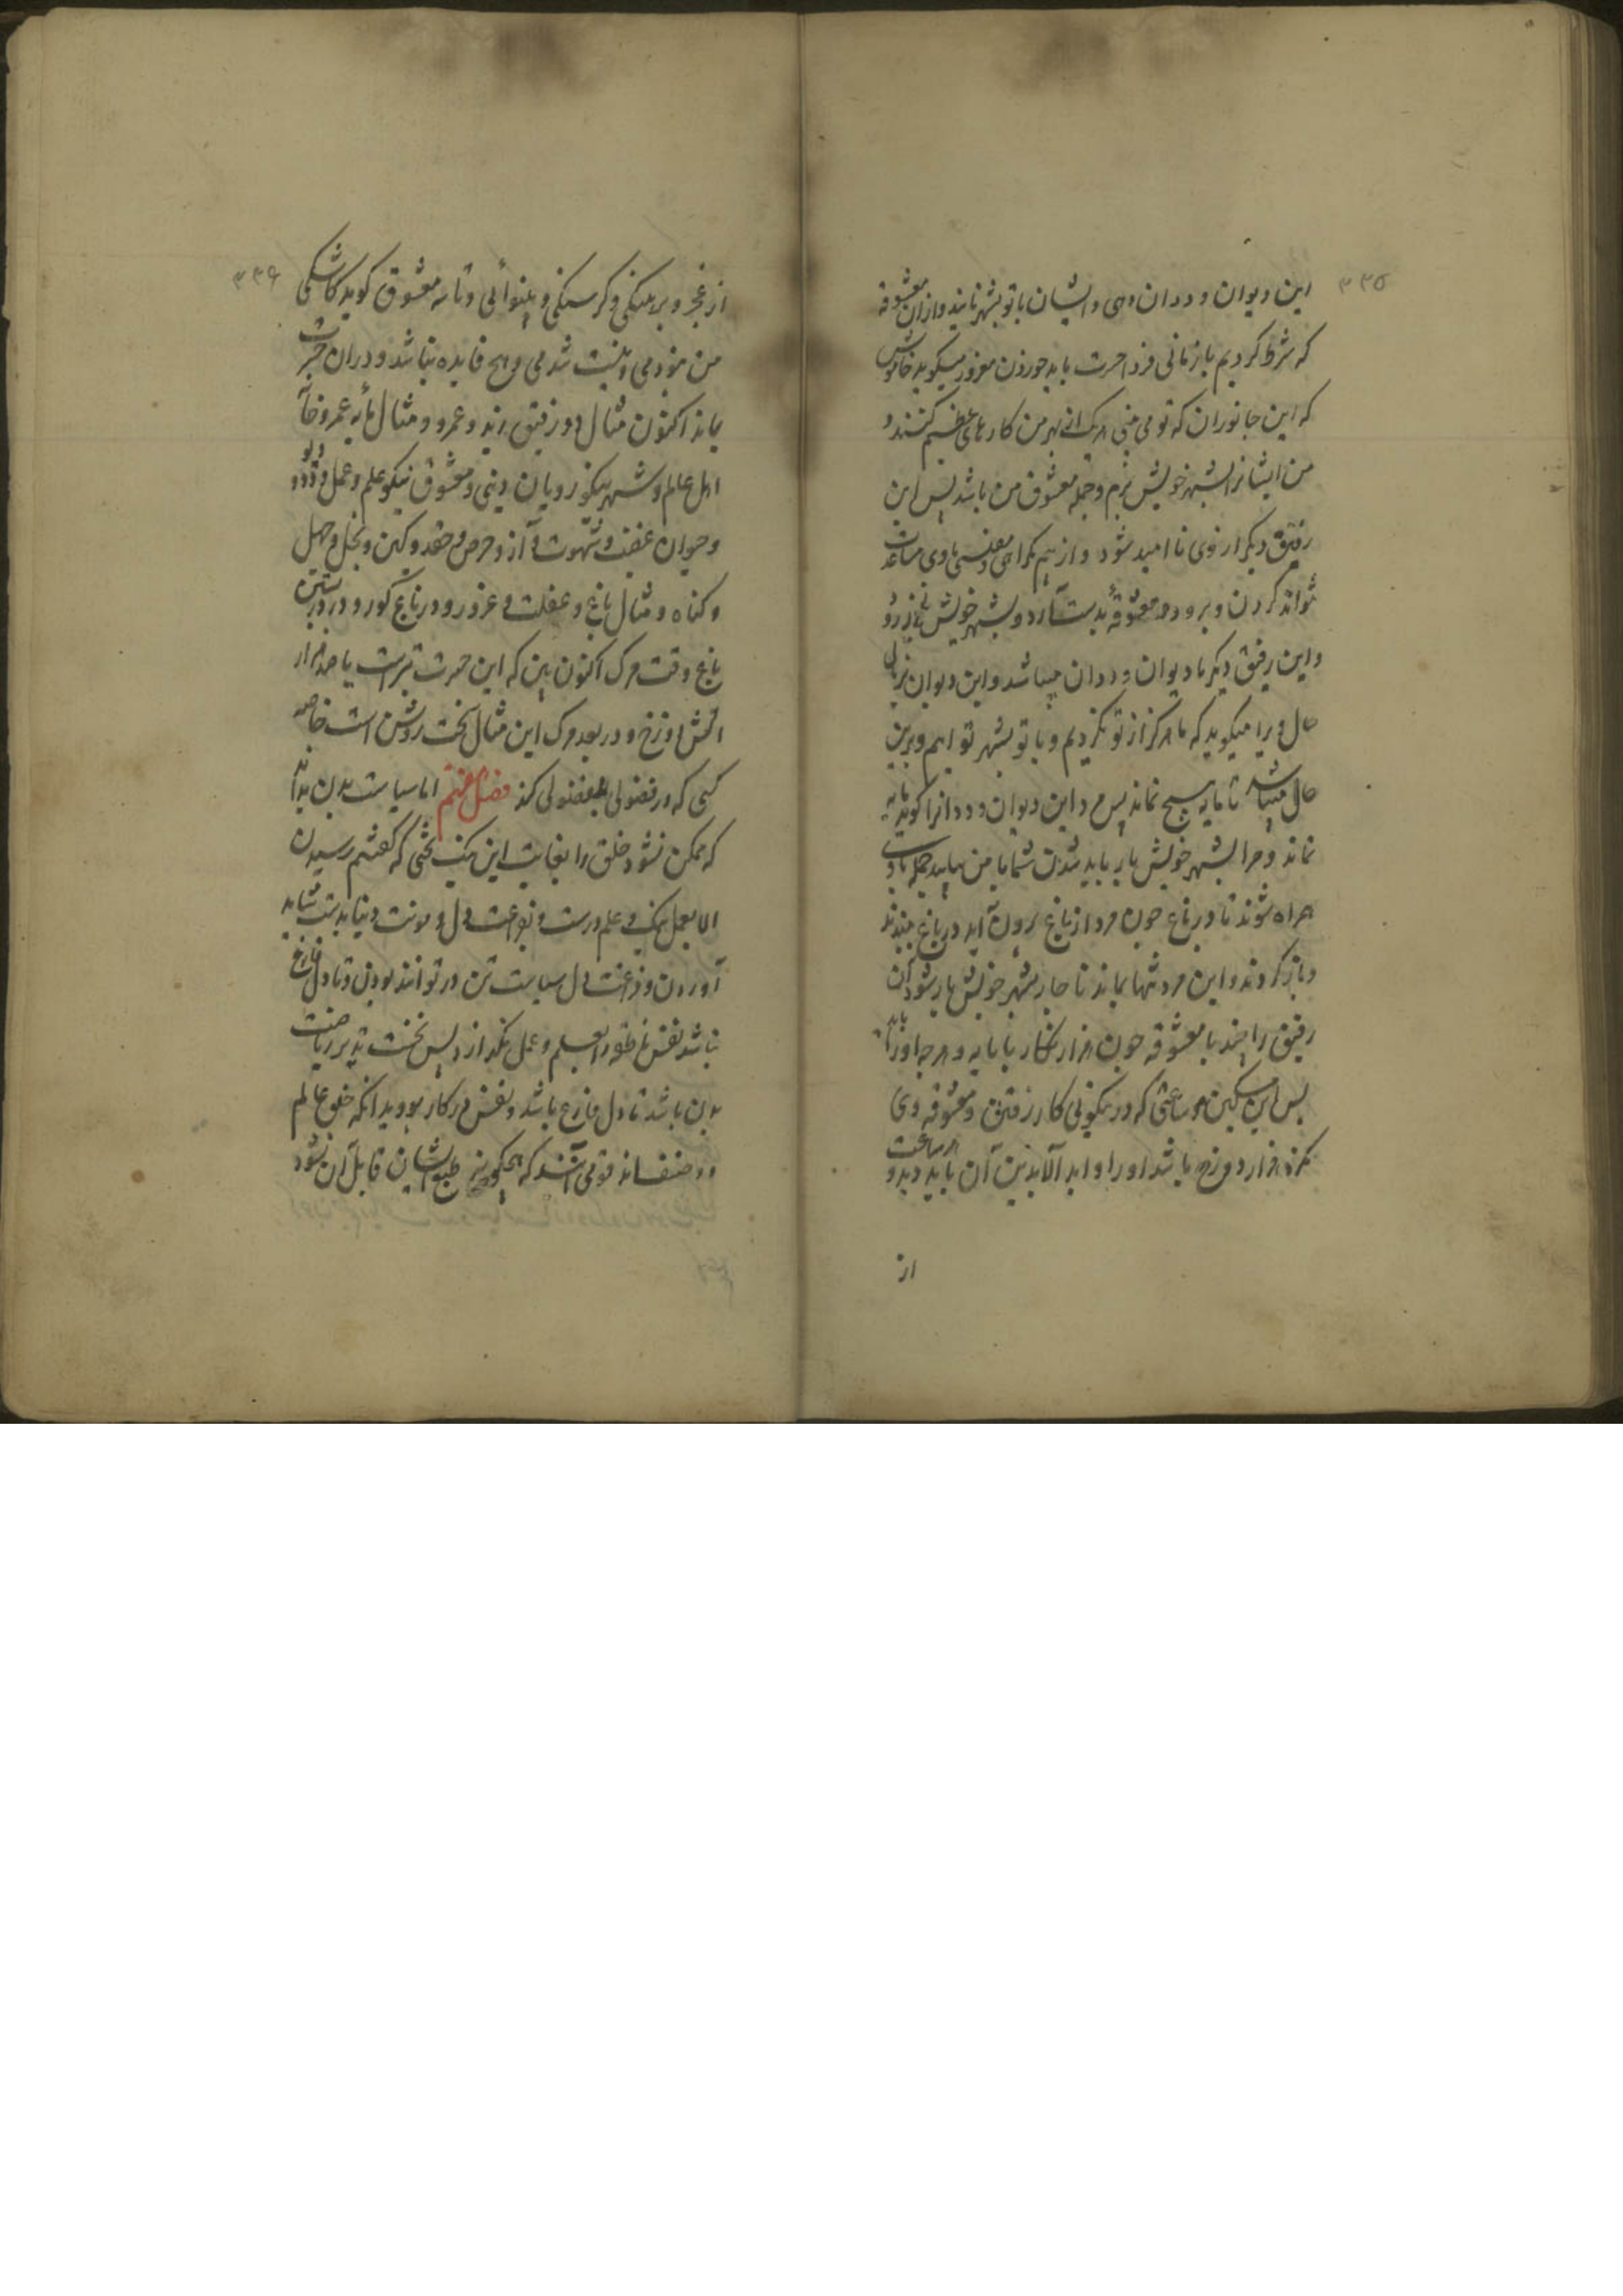 ۳۳۵
این دیوان و ددان دهی و ایشان با تو بشهر نایند و از ان معشوقه
که شرط کردیم بازمانی فردا حسرت باید خوردن مغرور میگوید خاموش
که این جانوران که تو می بینی هر یک از بهر من کارهای عظیم کنند و
من ایشانرا بشهر خویش برم و جمله معشوق من باشد پس این
رفیق دیگر از وی نا امید شود و از بیم گمراهی و مفلسی با وی مساعدت
نتواند کردن و برود و معشوقه بدست آرد و بشهر خویش باز رود
و این رفیق دیگر با دیوان و ددان میباشد و این دیوان بزبان
حال ویرا میگوید که ما هرگز از تو نگردیم و با تو بشهر تو آیم و برین
حال میباشد تا مایه هیچ نماند پس مرد این دیوان و ددانرا گوید مایه
نماند و مرا بشهر خویش باز باید شدن شما با من بیایید جمله با وی
همراه شوند تا در باغ چون مرد از باغ برون آید در باغ ببندند
و باز گردند و این مرد تنها بماند ناچار بشهر خویش باز شود آن
رفیق را بیند با معشوقه چون هزار نگار با مایه و هر چه او را باید
پس این مسکین هر ساعتی که در نیکوئی کار رفیق و معشوقه وی
نگرد هزار دوزخ باشد او را و ابد الآبدین آن باید دید و هر ساعت
از
۳۳۶
از عجز و برهنگی و گرسنگی و بینوائی و تا سه معشوق گوید کاشکی
من نبودمی و نیست شدمی و هیچ فایده نباشد و دران حسرت
بماند اکنون مثال دو رفیق زید و عمرو و مثال مایه عمر و خان
اهل عالم و شهر نیکو رویان دینی و معشوق نیکو علم و عمل و دیو و دد
و حیوان غضب و شهوت و آز و حرص و حقد و کین و بخل و جهل
و گناه و مثال باغ و غفلت و غرور و در باغ گور و در بستن
باغ وقت مرگ اکنون ببین که این حسرت بترست یا صد هزار
آتش دوزخ و در بعد مرگ این مثال سخت روشن است خاصه
کسی که در فضولی بفضولی کند فصل هفتم اما سیاست بدن بدانکه
که ممکن نشود خلق را بغایت این نیک بختی که گفتیم رسیدن
الا بعمل نیک و علم درست و بفراغت دل و مونت دنیا بدست نشاید
آوردن و فراغت دل سیاست تن در تواند بودن و تا دل فارغ
نباشد نفس ناطقه را بعلم و عمل نگذارد پس نخست تدبیر ریاضت
بدن باشد تا دل فارغ باشد و نفس در کار بود و بدانکه خلق عالم
دو صنف اند قومی آنند که بهیچگونه طبع ایشان قابل آن نشود